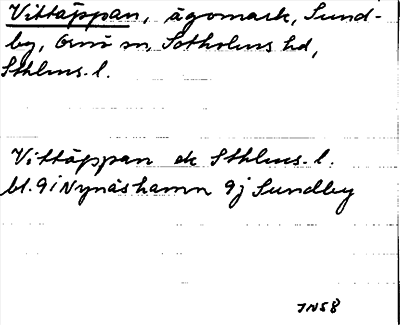 Vittäppan, ägomark, Sund-
by, Ornö sn, Sotholms hd,
Sthlms. l.
Vittäppan ek Sthlms. l.
bl. 9i Nynäshamn 9j Sundby
JN58